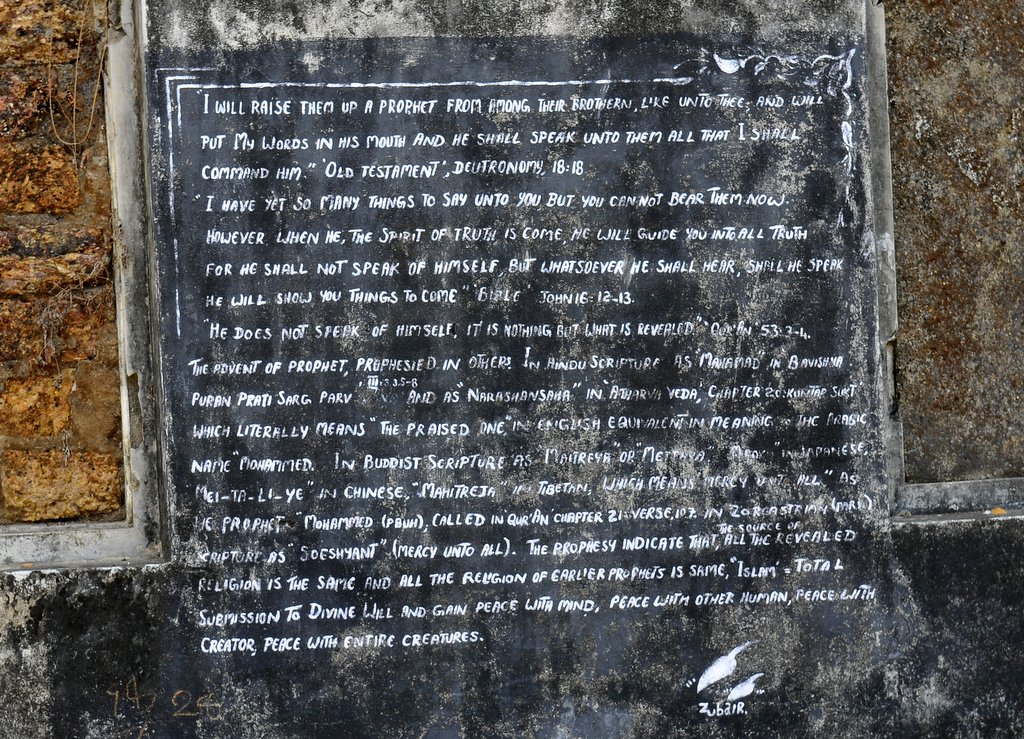 I WILL RAISE THEM UP A PROPHET FROM AMONG THEIR BROTHERN, LIKE UNTO THEE AND WILL
PUT MY WORDS IN HIS MOUTH AND HE SHALL SPEAK UNTO THEM ALL THAT I SHALL
COMMAND HIM." 'OLD TESTAMENT', DEUTRONOMY, 18:18
"I HAVE YET SO MANY THINGS TO SAY UNTO YOU BUT YOU CANNOT BEAR THEM NOW.
HOWEVER WHEN HE, THE SPIRIT OF TRUTH IS COME, HE WILL GUIDE YOU INTO ALL TRUTH
FOR HE SHALL NOT SPEAK OF HIMSELF, BUT WHATSOEVER HE SHALL HEAR, SHALL HE SPEAK
HE WILL SHOW YOU THINGS TO COME" "BIBLE" JOHN 16:12-13.
"HE DOES NOT SPEAK OF HIMSELF, IT IS NOTHING BUT WHAT IS REVEALED." "QUR'AN" 53:3-4.
THE ADVENT OF PROPHET, PROPHESIED IN OTHERS. IN HINDU SCRIPTURE AS "MAHAMAD" IN BAVISHYA
PURAN PRATI SARG PARV III:3.3.5-8 AND AS "NARASHANSAHA" IN "ATHARVA VEDA, CHAPTER 20:KUNTAP SUKT
WHICH LITERALLY MEANS "THE PRAISED ONE" IN ENGLISH EQUIVALENT IN MEANING THE ARABIC
NAME "MOHAMMED. IN BUDDIST SCRIPTURE AS "MAITREYA" OR "METTEYA" IN JAPANESE,
MEI-TA-LI-YE" IN CHINESE, "MAHITREJA" IN TIBETAN, WHICH MEANS MERCY UNTO ALL" AS
HE PROPHET "MOHAMMED (PBUH), CALLED IN 'QUR'AN' CHAPTER 21:VERSE,107. IN ZOROASTRIAN (PARSI)
SCRIPTURE AS "SOESHYANT" (MERCY UNTO ALL). THE PROPHESY INDICATE THAT, THE SOURCE OF ALL THE REVEALED
RELIGION IS THE SAME AND ALL THE RELIGION OF EARLIER PROPHETS IS SAME, "ISLAM" = TOTAL
SUBMISSION TO DIVINE WILL AND GAIN PEACE WITH MIND, PEACE WITH OTHER HUMAN, PEACE WITH
CREATOR, PEACE WITH ENTIRE CREATURES.
ZUBAIR.